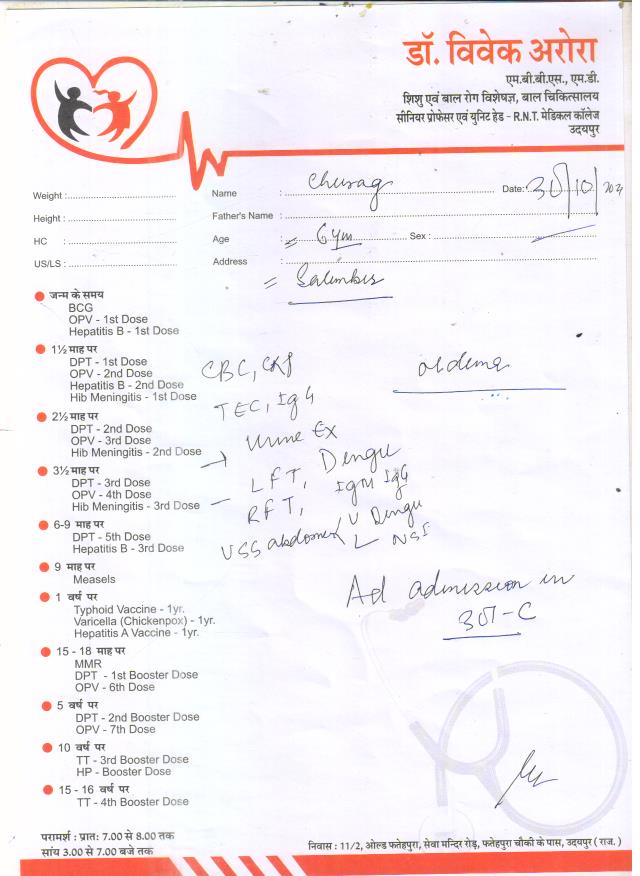 डॉ. विवेक अरोरा
एम.बी.बी.एस., एम.डी.
शिशु एवं बाल रोग विशेषज्ञ, बाल चिकित्सालय
सीनियर प्रोफेसर एवं युनिट हेड - R.N.T. मेडिकल कॉलेज
उदयपुर
Weight : Name : Chirag Date: 30/10/
Height : Father's Name :
HC : Age : 6 Sex :
US/LS : Address :
जन्म के समय
BCG
OPV - 1st Dose
Hepatitis B - 1st Dose
1½ माह पर
DPT - 1st Dose
OPV - 2nd Dose
Hepatitis B - 2nd Dose
Hib Meningitis - 1st Dose
2½ माह पर
DPT - 2nd Dose
OPV - 3rd Dose
Hib Meningitis - 2nd Dose
3½ माह पर
DPT - 3rd Dose
OPV - 4th Dose
Hib Meningitis - 3rd Dose
6-9 माह पर
DPT - 5th Dose
Hepatitis B - 3rd Dose
9 माह पर
Measels
1 वर्ष पर
Typhoid Vaccine - 1yr.
Varicella (Chickenpox) - 1yr.
Hepatitis A Vaccine - 1yr.
15 - 18 माह पर
MMR
DPT - 1st Booster Dose
OPV - 6th Dose
5 वर्ष पर
DPT - 2nd Booster Dose
OPV - 7th Dose
10 वर्ष पर
TT - 3rd Booster Dose
HP - Booster Dose
15 - 16 वर्ष पर
TT - 4th Booster Dose
CBC, CRP
TEC, IgG
Urine Ex
LFT, Dengu
RFT, IgM IgG
USS abdomen Dengu
NSI
oedema
Ad admission in
301-C
परामर्श : प्रात: 7.00 से 8.00 तक
सांय 3.00 से 7.00 बजे तक
निवास : 11/2, ओल्ड फतेहपुरा, सेवा मन्दिर रोड़, फतेहपुरा चौकी के पास, उदयपुर ( राज. )